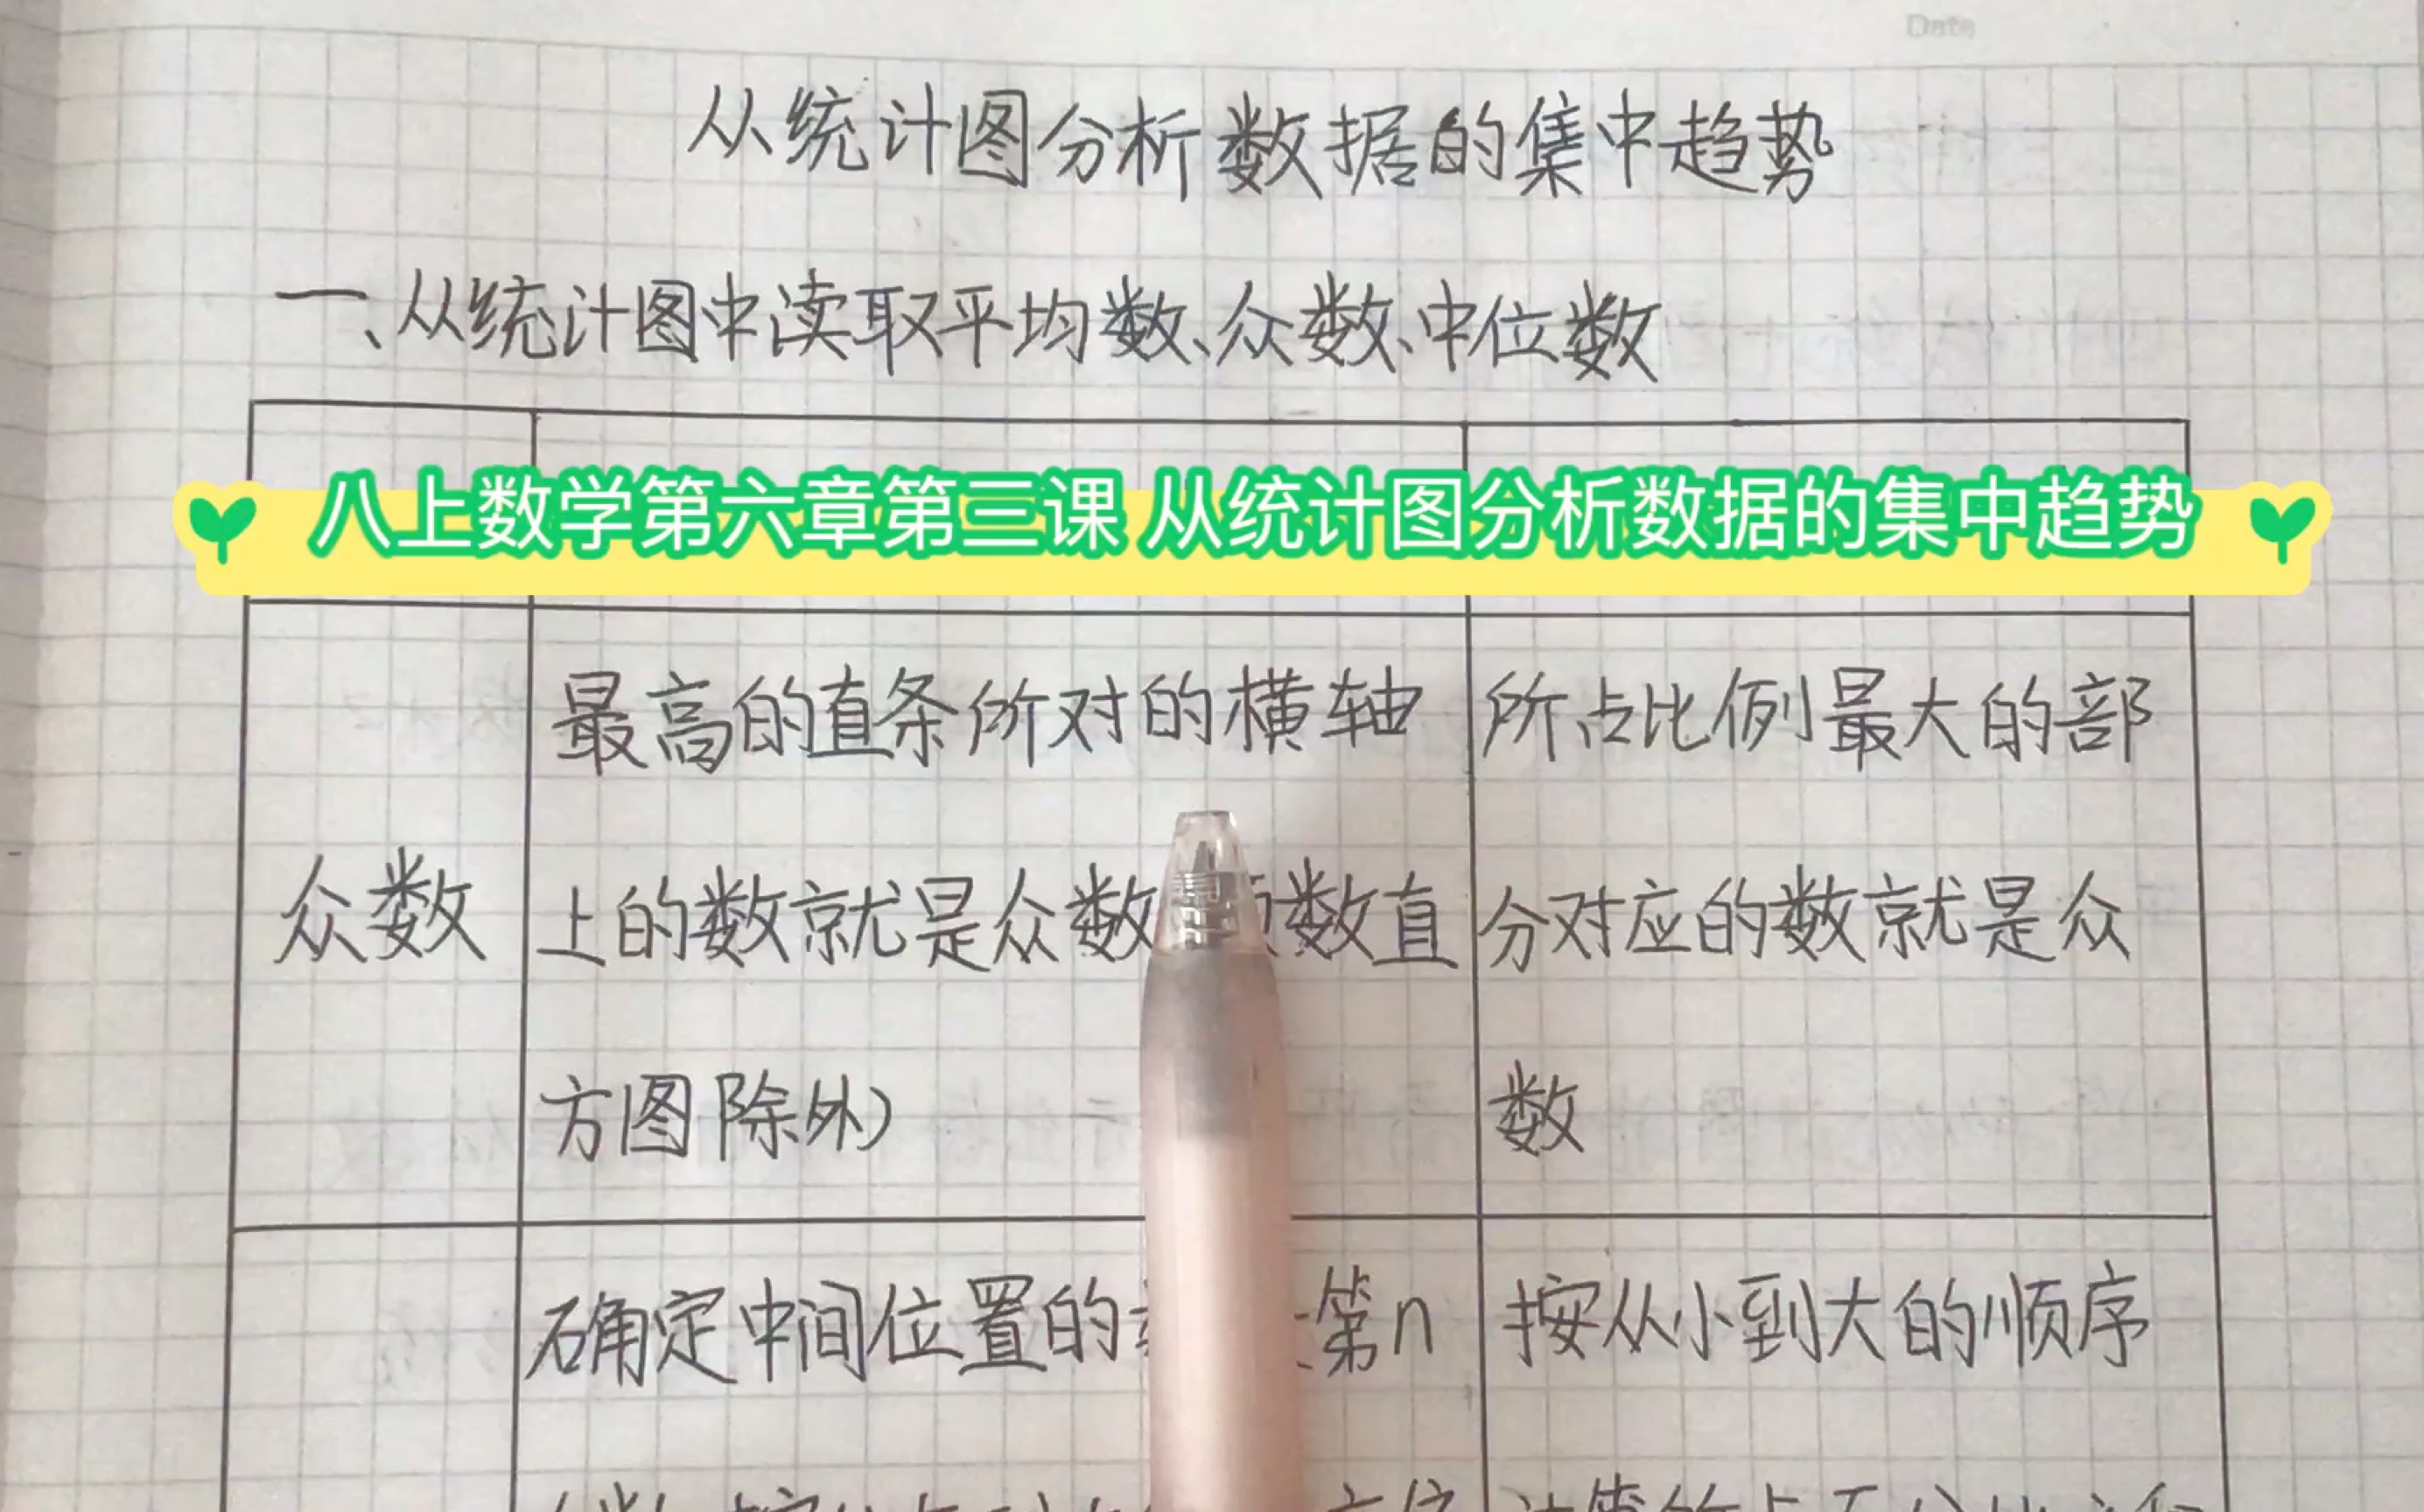 Date
从统计图分析数据的集中趋势
一、从统计图中读取平均数、众数、中位数
八上数学第六章第三课 从统计图分析数据的集中趋势
众数
最高的直条所对的横轴
上的数就是众数 数直
方图除外)
所占比例最大的部
分对应的数就是众
数
确定中间位置的 第n
按从小到大的顺序